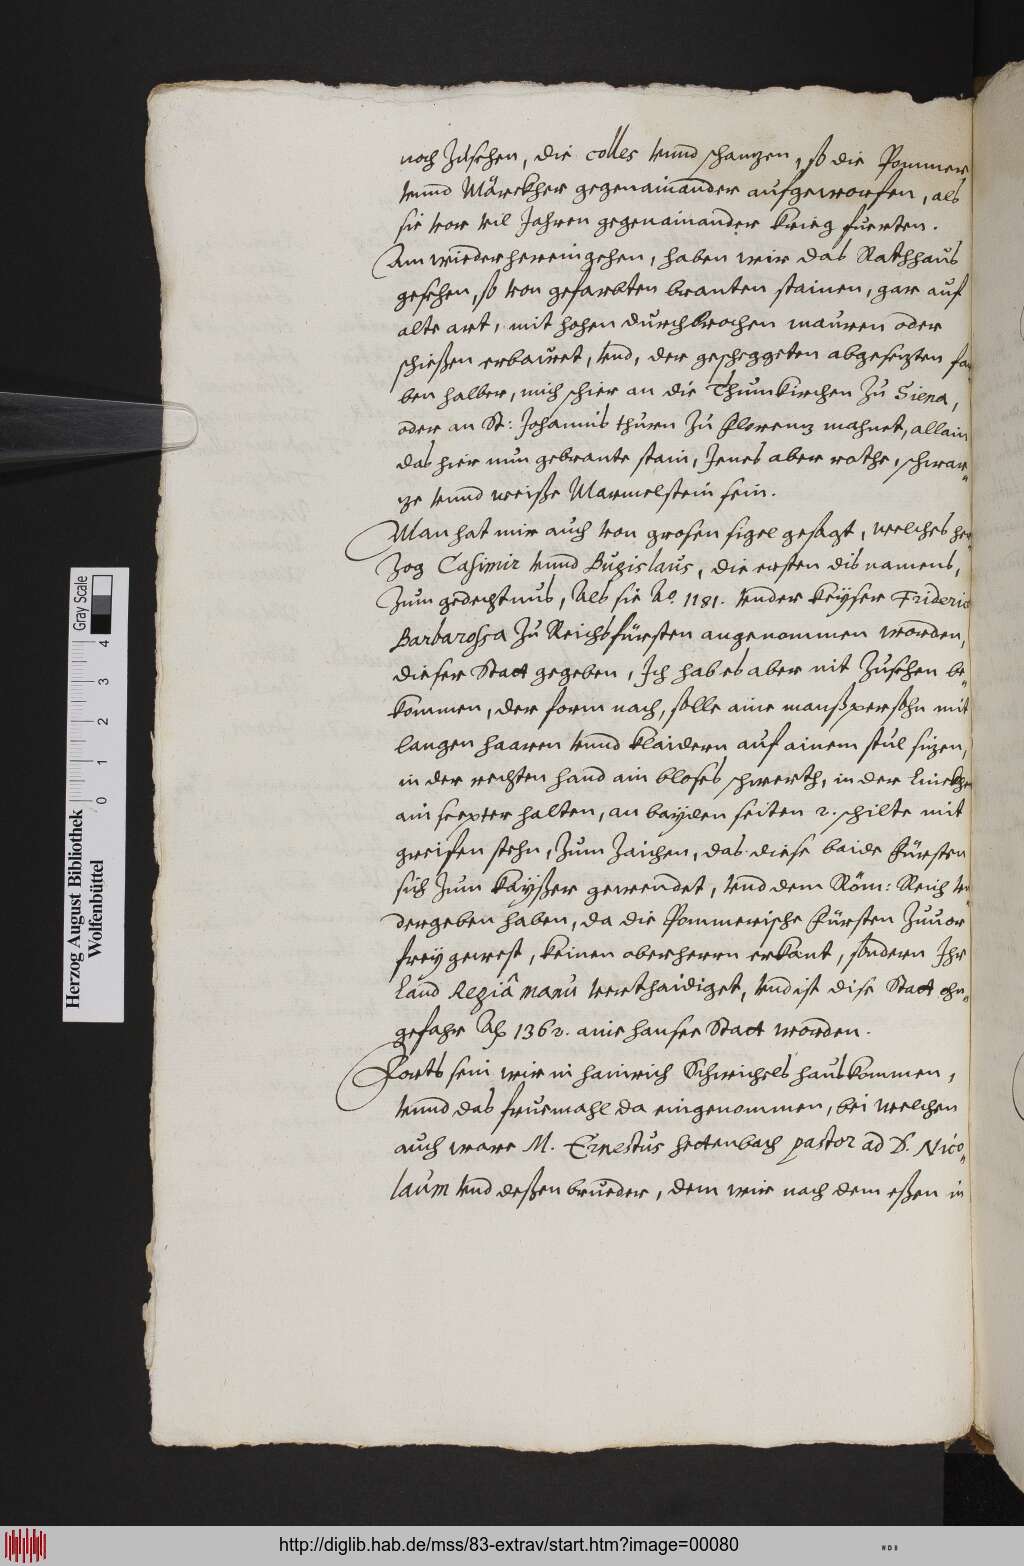 noch zusehen, die colles vnnd schanzen, so die Pommer
vnnd Märckher gegenainander aufgeworfen, als
sie vor vil Jahren gegenainander krieg fuerten.
Am wiederhereingehen, haben wir das Rathhaus
gesehen, so von gefarbten branten stainen, gar auf
alte art, mit hohen durchbrochen mauren oder
schießen erbauwet, vnd, der gescheggeten abgesezten far„
ben halber, mich schier an die Thumkirchen zu Siena,
oder an St: Johannis thurn zu Florenz mahnet, allain
das hier nun gebrante stain, Jenes aber rothe, schwar„
ze vnnd weiße Marmelstein sein.
Man hat mir auch von grosen sigel gesagt, welches her„
zog Casimir vnnd Bugislaus, die ersten dis namens,
zum gedechtnus, Als sie Ao. 1181. vnder keyser Friderico
Barbarossa zu Reichsfürsten angenommen worden,
dieser Statt gegeben, Ich hab es aber nit zusehen be„
kommen, der form nach, solle aine manßpersohn mit
langen haaren vnnd klaidern auf ainem stul sizen,
in der rechten hand ain bloses schwerth, in der linckhen
ain scepter halten, an bayden seiten 2. schilte mit
greifen stehn, zum zaichen, das diese baide Fürsten
sich zum Kayßer gewendet, vnd dem Röm: Reich vn„
dergeben haben, da die Pommerische Fürsten zuuor
frey gewest, keinen oberherrn erkant, sondern Ihr
Land Regiâ manu verthaidiget, vnd ist dise Statt ohn„
gefahr Ao 1362. aine hansee Statt worden.
Forts sein wir in hainrich Schwichels haus kommen,
vnnd das fruemahl da eingenommen, bei welchen
auch ware M. Ernestus Hettenbach pastor ad D. Nico„
laum vnd deßen brueder, dem wir nach dem eßen in
Herzog August Bibliothek
Wolfenbüttel
0 1 2 3 4
Gray Scale
http://diglib.hab.de/mss/83-extrav/start.htm?image=00080